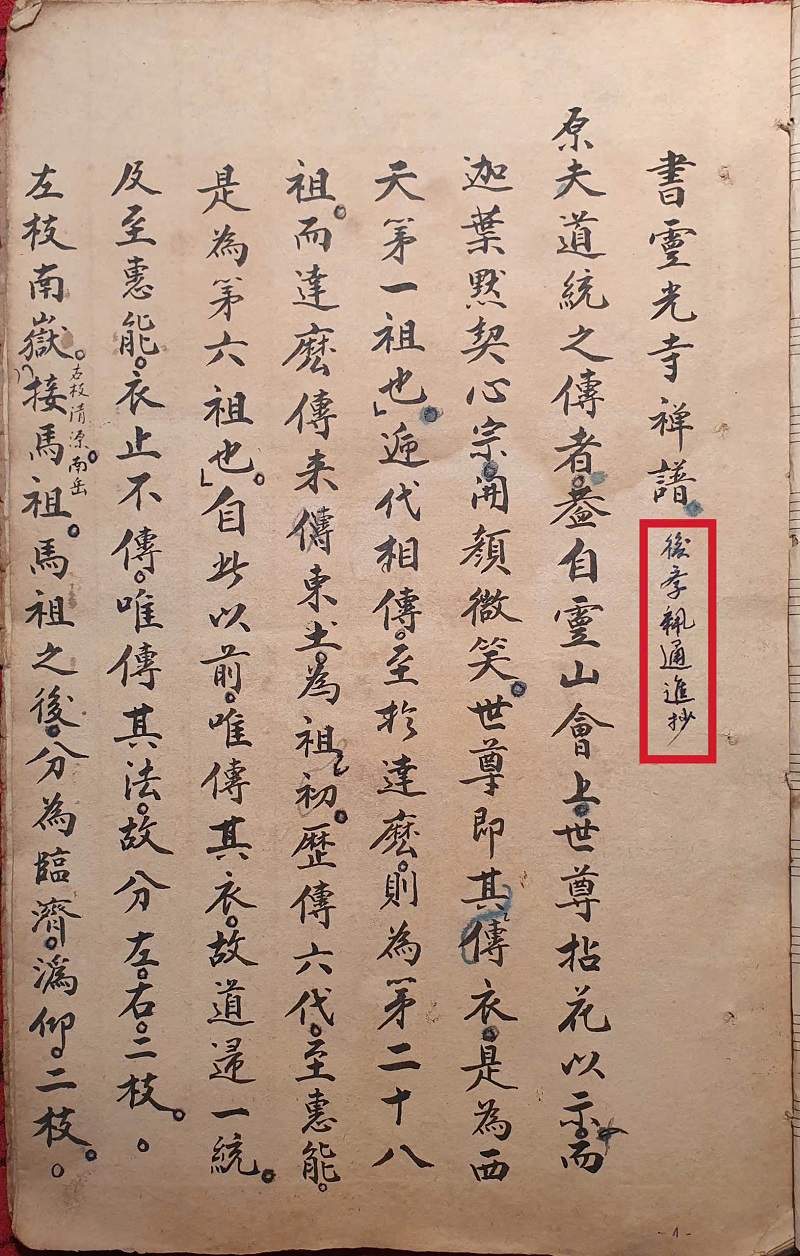 書靈光寺禅譜。後孝珮通進抄
原夫道統之傳者。葢自靈山會上。世尊拈花以示。而
迦葉默契心宗。開顏微笑。世尊即其傳衣。是為西
天第一祖也」。迊代相傳。至於達麽。則為第二十八
祖。而達麽傳来傳東土。為祖初。歷傳六代。至惠能。
是為第六祖也」。自此以前。唯傳其衣。故道逓一統。
及至惠能。衣止不傳。唯傳其法。故分左。右。二枝。。
左枝南嶽。接馬祖。馬祖之後。分為臨濟。溈仰。二枝。。
右枝清源。南岳
-1-